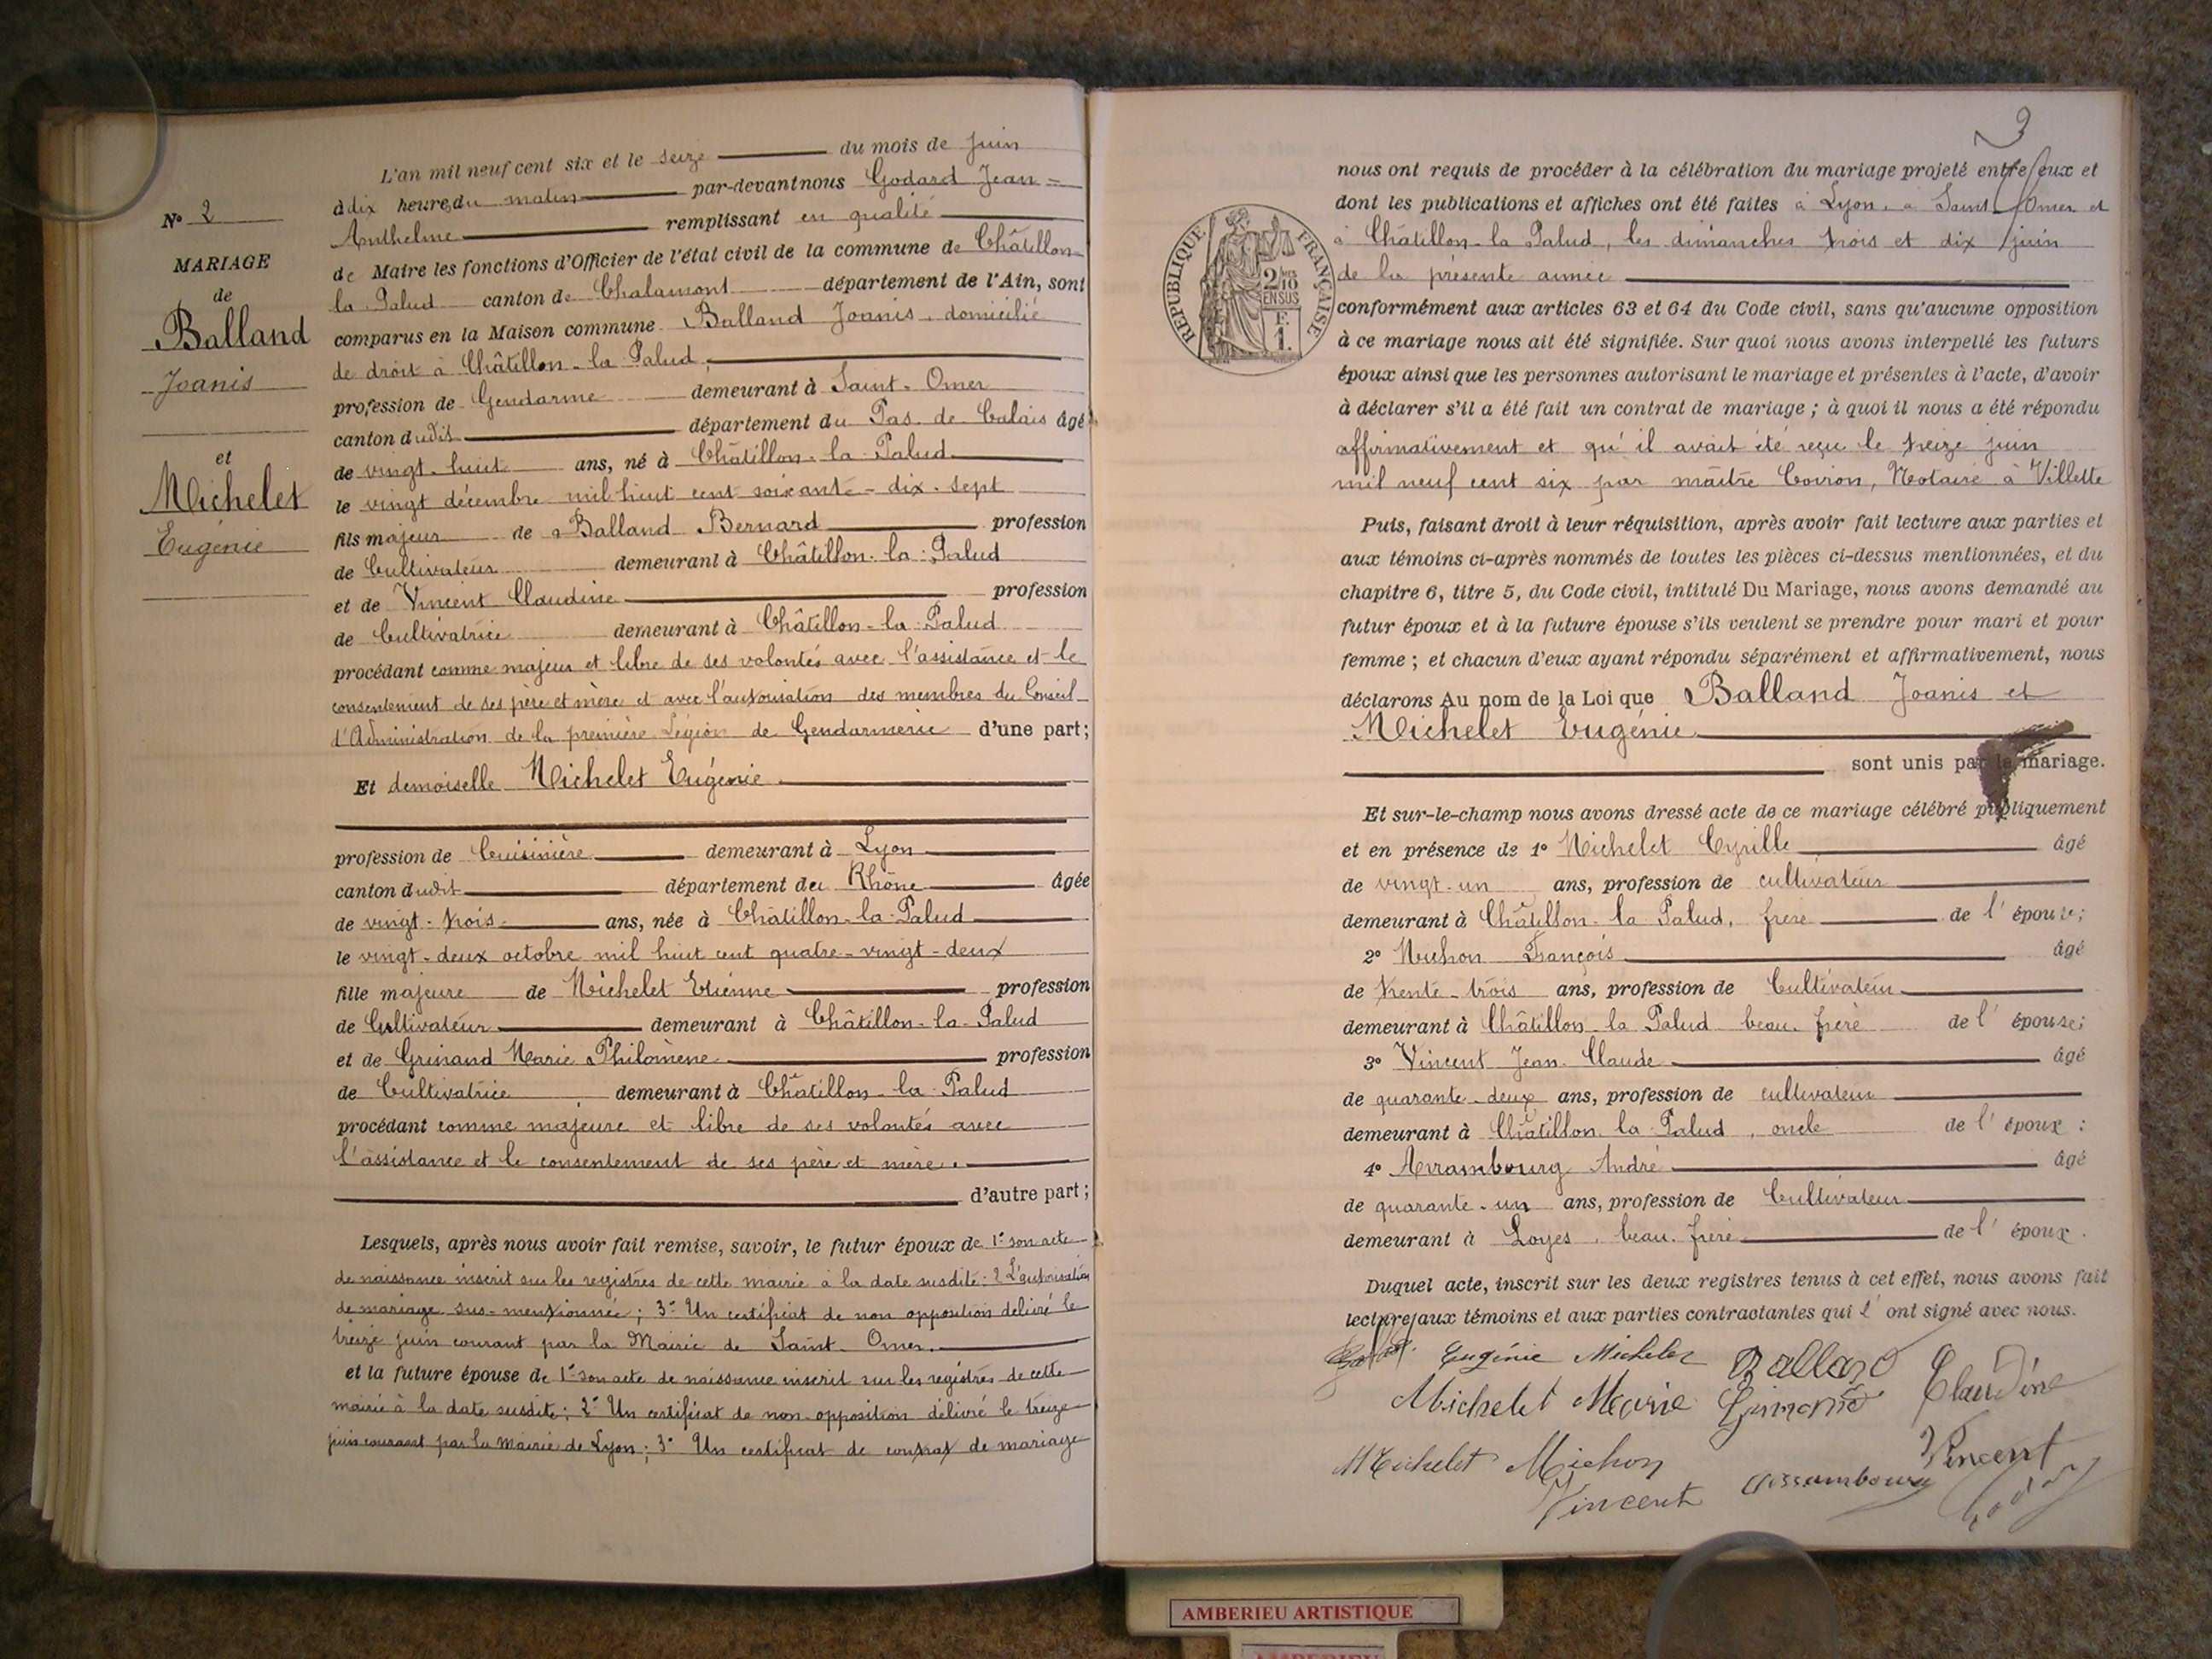 L'an mil neuf cent six et le seize du mois de Juin
à dix heures du matin par-devant nous Godard Jean=
Anthelme remplissant en qualité
de Maire les fonctions d'Officier de l'état civil de la commune de Châtillon-
la Palud canton de Chalamont département de l'Ain, sont
comparus en la Maison commune Balland Joanis, domicilié
de droit à Châtillon-la-Palud,
profession de Gendarme demeurant à Saint-Omer
canton dudit département du Pas-de-Calais âgé
de vingt-huit ans, né à Châtillon-la-Palud
le vingt décembre mil huit cent soixante-dix-sept
fils majeur de Balland Bernard profession
de Cultivateur demeurant à Châtillon-la-Palud
et de Vincent Claudine profession
de Cultivatrice demeurant à Châtillon-la-Palud
procédant comme majeur et libre de ses volontés avec l'assistance et le
consentement de ses père et mère et avec l'autorisation des membres du Conseil
d'Administration de la première Légion de Gendarmerie d'une part;
Et demoiselle Michelet Eugénie
profession de Cuisinière demeurant à Lyon
canton dudit département du Rhône âgée
de vingt-trois ans, née à Châtillon-la-Palud
le vingt-deux octobre mil huit cent quatre-vingt-deux
fille majeure de Michelet Etienne profession
de Cultivateur demeurant à Châtillon-la-Palud
et de Grinand Marie Philomène profession
de Cultivatrice demeurant à Châtillon-la-Palud
procédant comme majeure et libre de ses volontés avec
l'assistance et le consentement de ses père et mère.
d'autre part;
Lesquels, après nous avoir fait remise, savoir, le futur époux de 1° son acte
de naissance inscrit sur les registres de cette mairie à la date susdite: 2° L'autorisation
de mariage sus-mentionnée; 3° Un certificat de non opposition délivré le
treize juin courant par la Mairie de Saint-Omer.
et la future épouse de 1° son acte de naissance inscrit sur les registres de cette
mairie à la date susdite; 2° Un certificat de non-opposition délivré le treize
juin courant par la Mairie de Lyon; 3° Un certificat de contrat de mariage
N° 2
MARIAGE
de
Balland
Joanis
et
Michelet
Eugénie
3
nous ont requis de procéder à la célébration du mariage projeté entre eux et
dont les publications et affiches ont été faites à Lyon, à Saint-Omer et
à Châtillon-la-Palud, les dimanches trois et dix juin
de la présente année
conformément aux articles 63 et 64 du Code civil, sans qu'aucune opposition
à ce mariage nous ait été signifiée. Sur quoi nous avons interpellé les futurs
époux ainsi que les personnes autorisant le mariage et présentes à l'acte, d'avoir
à déclarer s'il a été fait un contrat de mariage; à quoi il nous a été répondu
affirmativement et qu'il avait été reçu le treize juin
mil neuf cent six par maître Coiron, Notaire à Villette
Puis, faisant droit à leur réquisition, après avoir fait lecture aux parties et
aux témoins ci-après nommés de toutes les pièces ci-dessus mentionnées, et du
chapitre 6, titre 5, du Code civil, intitulé Du Mariage, nous avons demandé au
futur époux et à la future épouse s'ils veulent se prendre pour mari et pour
femme; et chacun d'eux ayant répondu séparément et affirmativement, nous
déclarons Au nom de la Loi que Balland Joanis et
Michelet Eugénie
sont unis par le mariage.
Et sur-le-champ nous avons dressé acte de ce mariage célébré publiquement
et en présence de 1° Michelet Cyrille âgé
de vingt-un ans, profession de cultivateur
demeurant à Châtillon-la-Palud, frère de l'épouse;
2° Michon François âgé
de trente-trois ans, profession de Cultivateur
demeurant à Châtillon-la Palud beau-frère de l'épouse;
3° Vincent Jean-Claude âgé
de quarante-deux ans, profession de cultivateur
demeurant à Châtillon-la-Palud, oncle de l'époux:
4° Arrambourg André âgé
de quarante-un ans, profession de Cultivateur
demeurant à Loyes, beau-frère de l'époux.
Duquel acte, inscrit sur les deux registres tenus à cet effet, nous avons fait
lecture aux témoins et aux parties contractantes qui l'ont signé avec nous.
Eugénie Michelet Balland Claudine
Michelet Marie Grinand
Michelet Michon Vincent
Vincent Arrambourg
RÉPUBLIQUE FRANÇAISE
2/10
EN SUS
F.
1.
AMBERIEU ARTISTIQUE
AMBERIEU